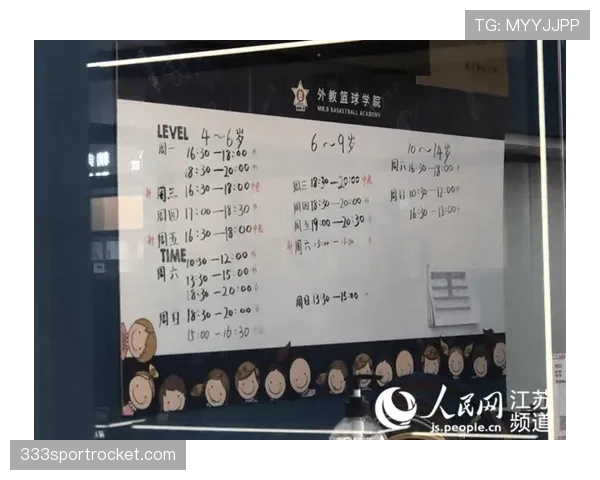 TG: MYYJJPP
外教篮球学院
MR.B BASKETBALL ACADEMY
LEVEL 4～6岁 6～9岁 10～14岁
周一 16:30—18:00 周六 16:30—18:00
18:30—20:00
周三 16:30—18:00 周三 18:30—20:00 周日 10:30—12:00
周四 17:00—18:30 周四 18:30—20:00 16:30—18:00
周五 16:30—18:00 周五 19:00—20:30
TIME 10:30—12:00 周六
周六 13:30—15:00
18:30—20:00
周日 18:30—20:00 周日 13:30—15:00
15:00—16:30
人民网 江苏
js.people.cn 频道
333sportrocket.com